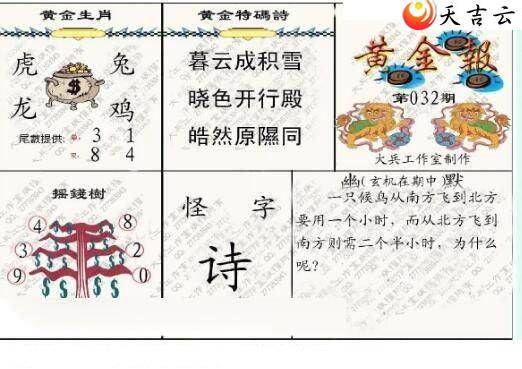 天吉云
黄金生肖
虎 兔
龙 鸡
尾數提供: 3 1
8 4
黄金特碼詩
暮云成积雪
晓色开行殿
皓然原隰同
黄金報
第032期
大兵工作室制作
摇錢樹
4 8
3 2
9 0
怪 字
诗
幽(玄机在期中)默
一只候鸟从南方飞到北方
要用一个小时，而从北方飞到
南方则需二个半小时，为什么
呢？